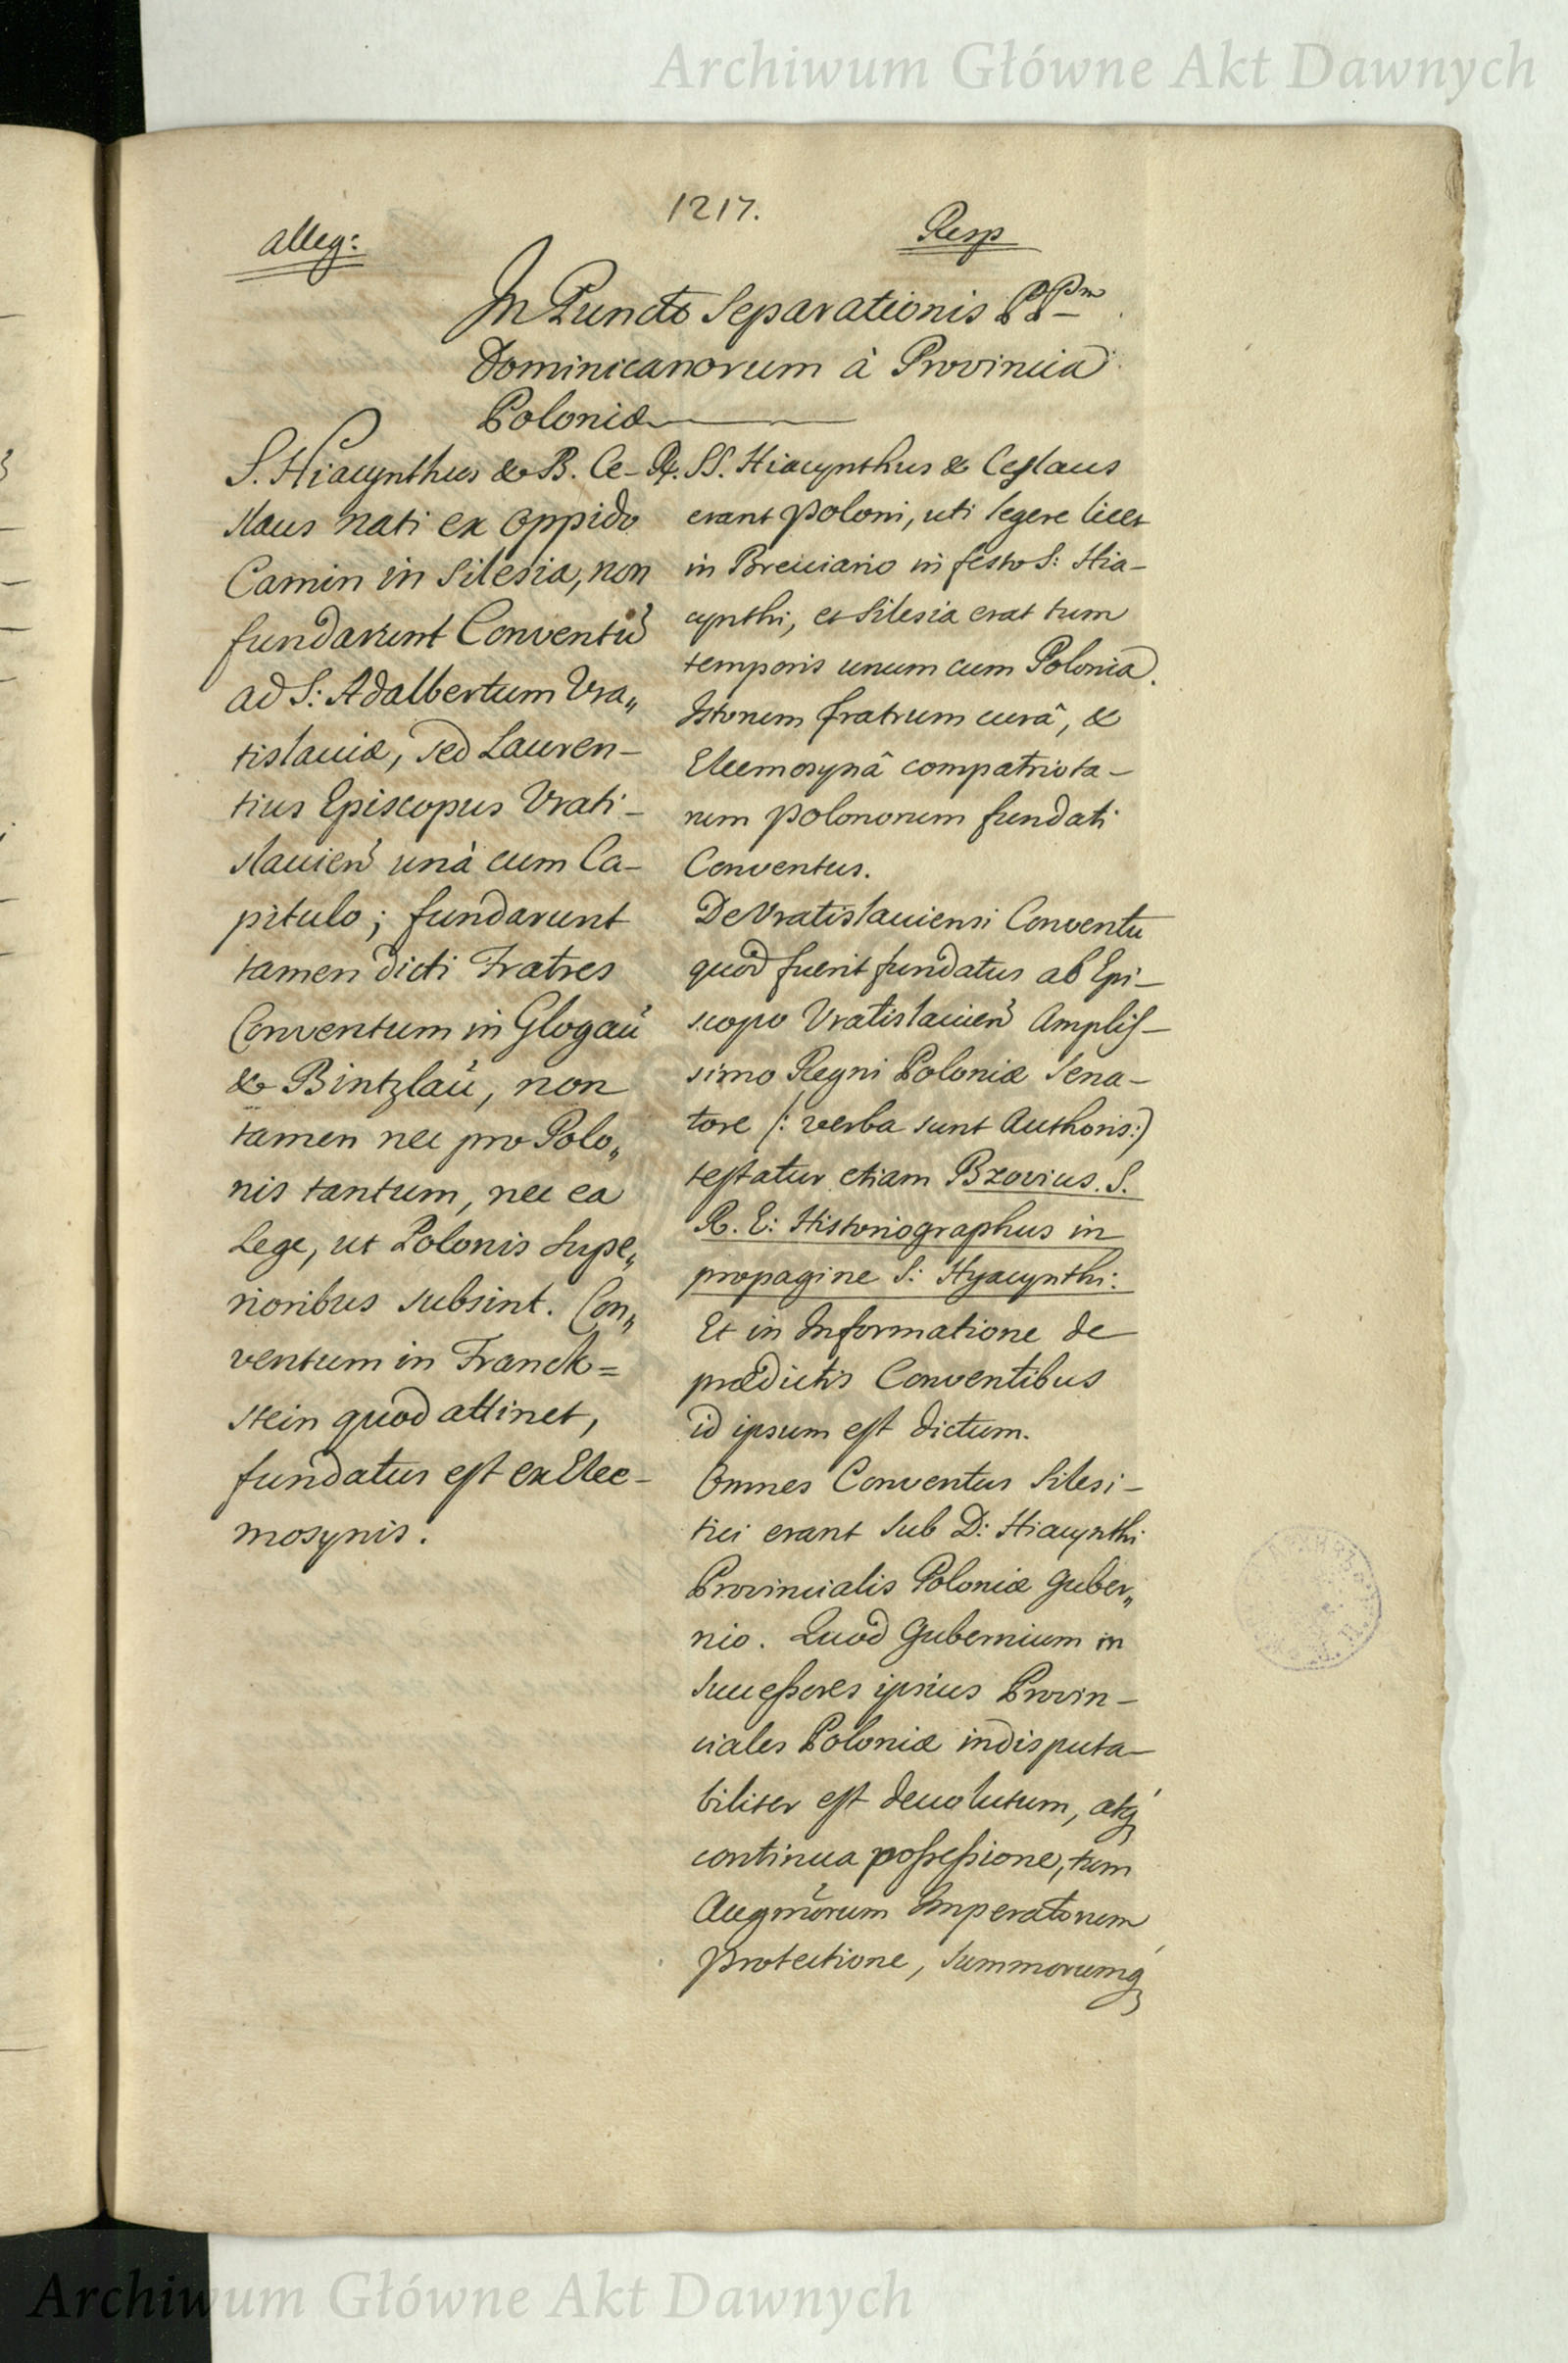 Archiwum Główne Akt Dawnych
1217.
alleg:
Resp
In Puncto Separationis PP^m
Dominicanorum à Provincia
Poloniæ
S. Hiacynthus & B. Ce-
slaus nati ex oppido
Camin in Silesia, non
fundarunt Conventũ
ad S: Adalbertum Vra„
tislauiæ, sed Lauren-
tius Episcopus Vrati-
slauien̉ unà cum Ca-
pitulo; fundarunt
tamen dicti Fratres
Conventum in Glogaŭ
& Bintzlaŭ, non
tamen nec pro Polo„
nis tantum, nec ea
Lege, ut Polonis Supe„
rioribus subsint. Con„
ventum in Franck=
stein quod attinet,
fundatus est ex Elee-
mosynis.
R. SS. Hiacynthus & Ceslaus
erant Poloni, uti legere licet
in Breuiario in festo S: Hia-
cynthi, et Silesia erat tum
temporis unum cum Polonia.
Istorum fratrum curâ, &
Eleemosynâ compatriota-
rum Polonorum fundati
Conventus.
De Vratislauiensi Conventu
quod fuerit fundatus ab Epi-
scopo Vratislauien̉ Amplis-
simo Regni Poloniæ Sena-
tore (: verba sunt Authoris:)
testatur etiam Bzovius. S.
R. E: Historiographus in
propagine S: Hyacynthi:
Et in Informatione de
prædictis Conventibus
id ipsum est dictum.
Omnes Conventus Silesi-
tici erant sub D: Hiacynthi
Provincialis Poloniæ guber„
nio. Quod Gubernium in
Successores ipsius Provin-
ciales Poloniæ indisputa-
biliter est deuolutum, atq́
continua possessione, tum
Augm̃orum Imperatorum
protectione, Summorumq́
Archiwum Główne Akt Dawnych